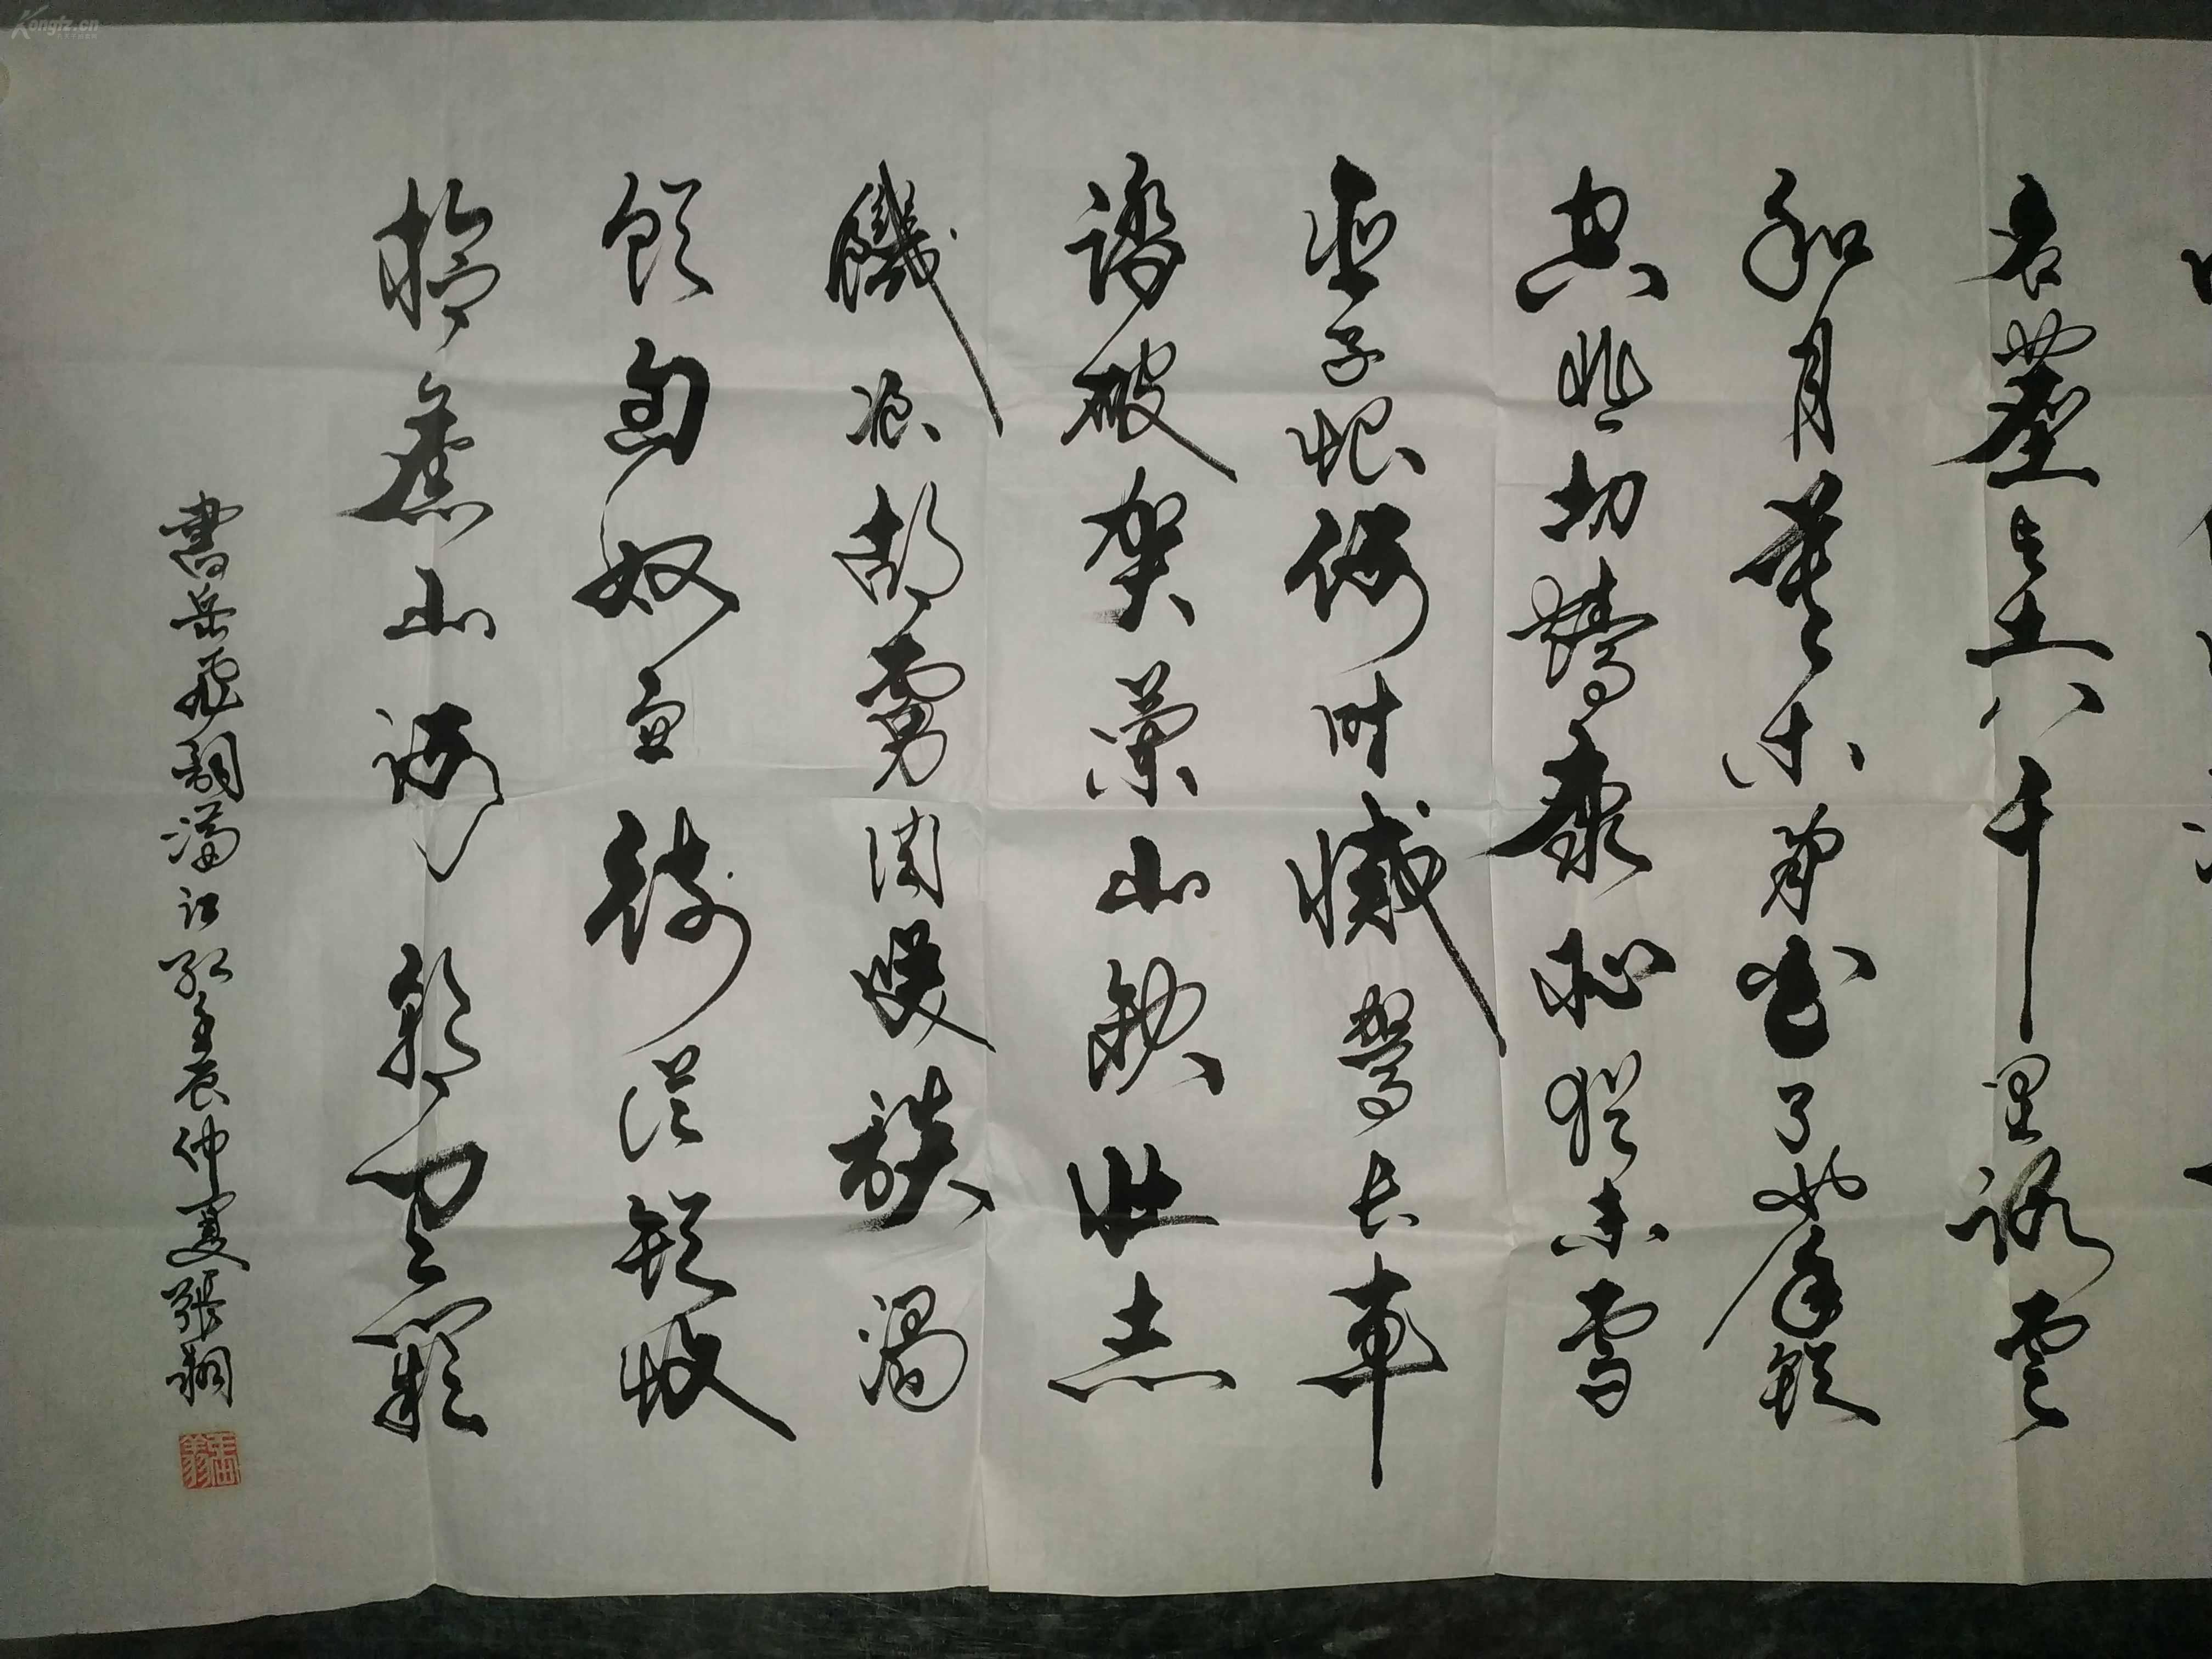 名塵与土八千里路雲
和月莫等閒白了少年頭
空悲切靖康恥猶未雪
臣子恨何時滅駕長車
踏破賀蘭山缺壯志
饑餐胡虜肉笑談渴
飲匈奴血待從頭收
拾舊山河朝天闕
書岳飛詞滿江紅壬辰仲夏張翔
Kongfz.cn